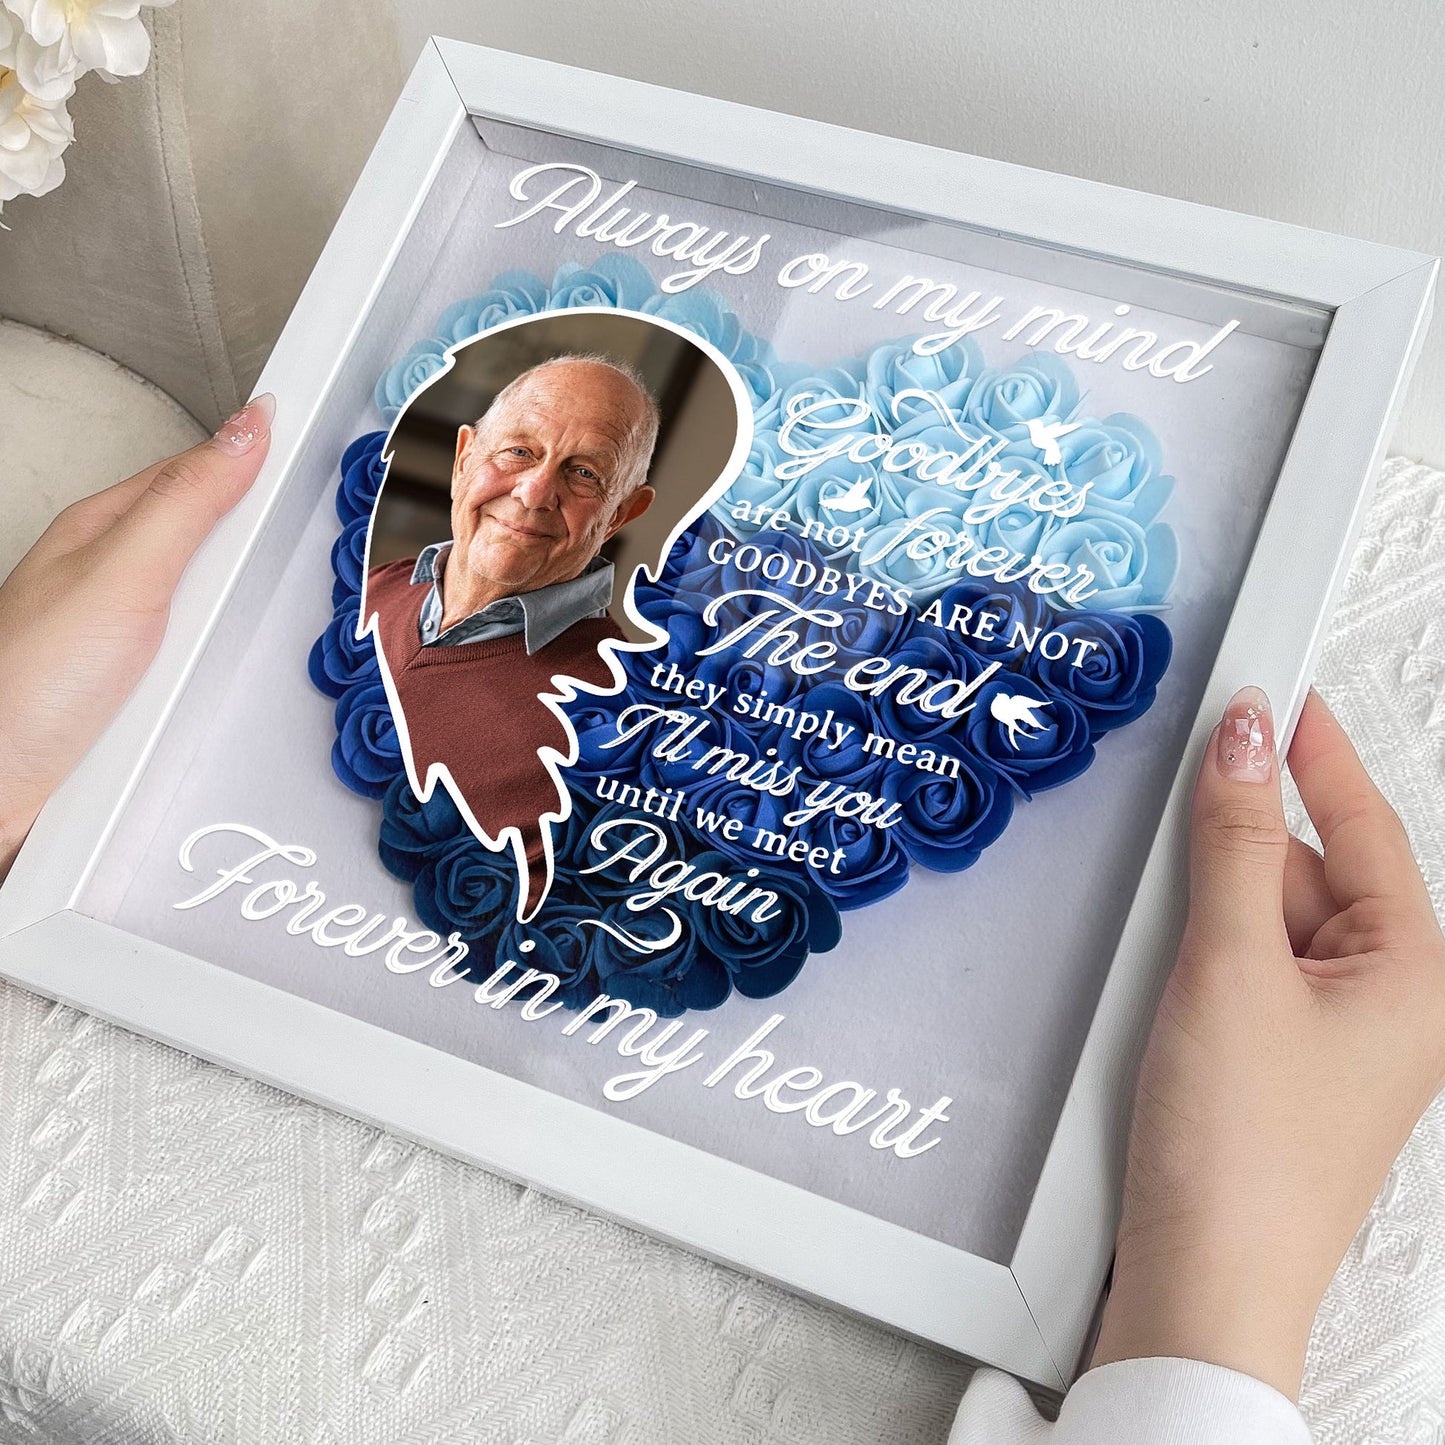 Always on my mind
Goodbyes
are not forever
GOODBYES ARE NOT
The end
they simply mean
I'll miss you
until we meet
Again
Forever in my heart